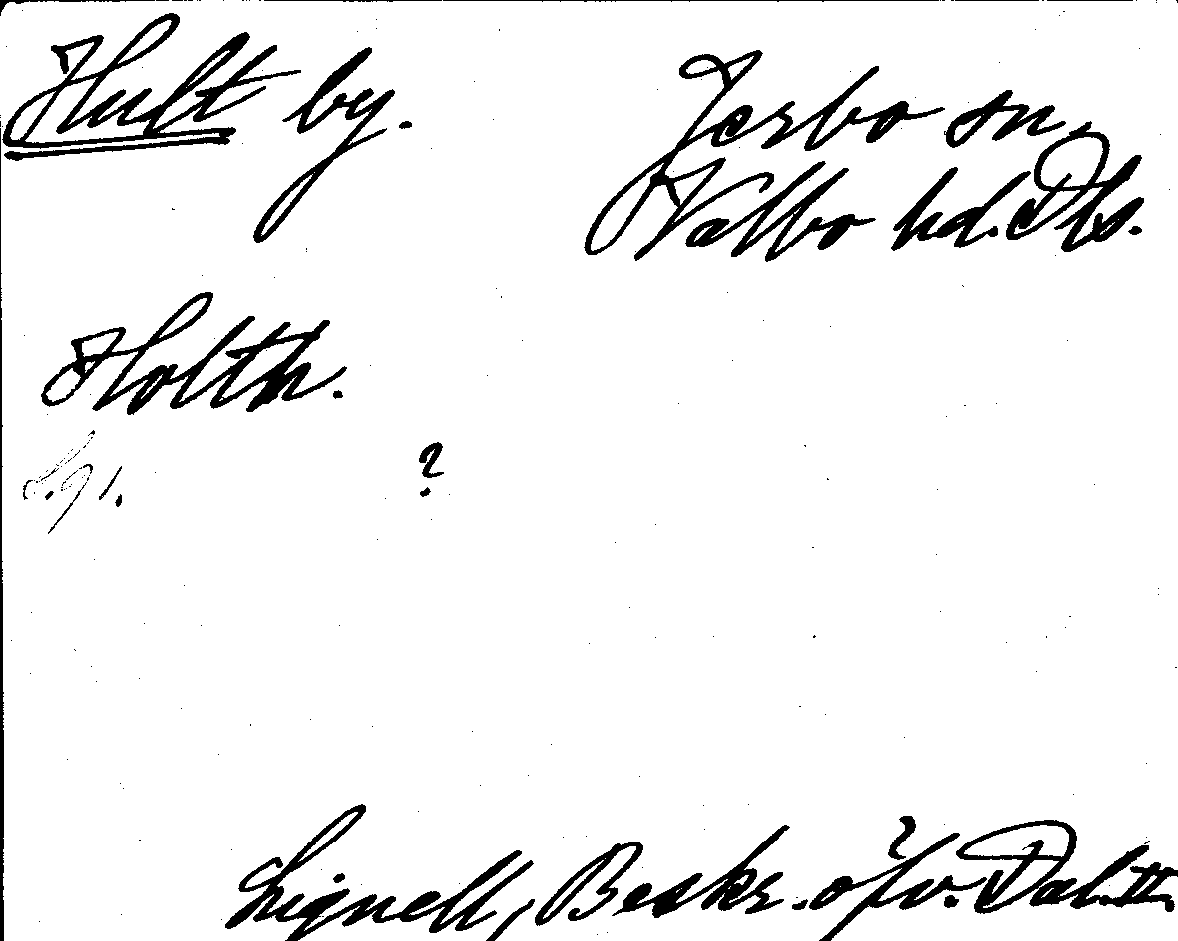 Hult by.
Jerbo sn,
Valbo hd. Dls.
Holth.
S. 91.
?
Lignell, Beskr. öfv. Dal. II.